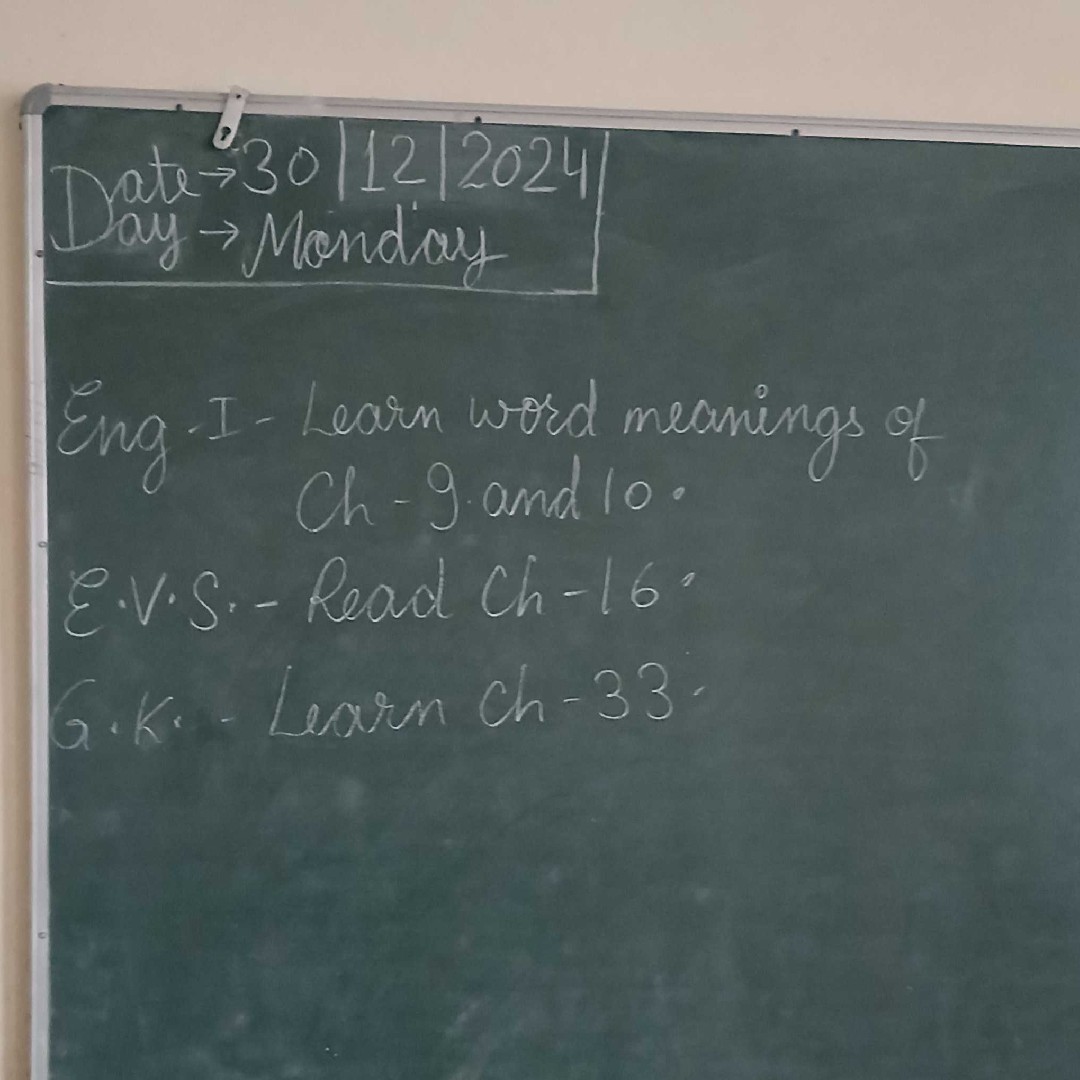 Date → 30|12|2024
Day → Monday
Eng - I - Learn word meanings of
Ch - 9 and 10.
E.V.S. - Read Ch - 16.
G.K. - Learn Ch - 33.